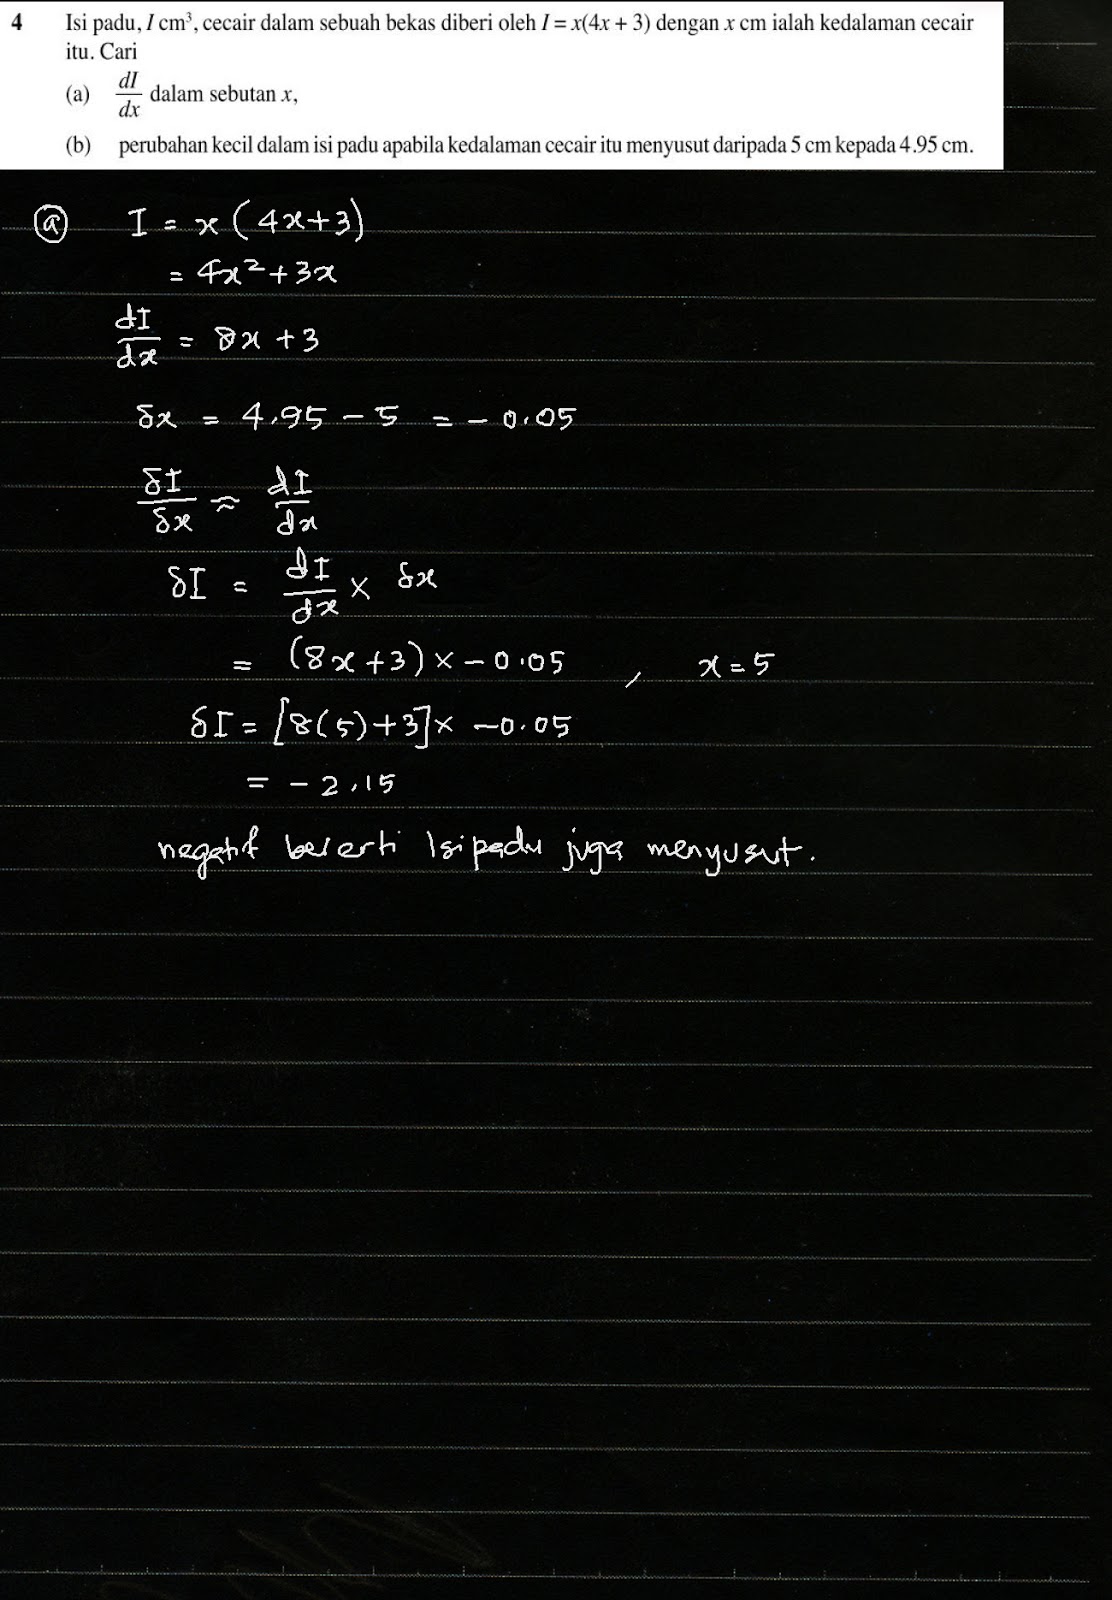 4 Isi padu, I cm³, cecair dalam sebuah bekas diberi oleh I = x(4x + 3) dengan x cm ialah kedalaman cecair
itu. Cari
(a) dI/dx dalam sebutan x,
(b) perubahan kecil dalam isi padu apabila kedalaman cecair itu menyusut daripada 5 cm kepada 4.95 cm.
ⓐ I = x(4x+3)
= 4x²+3x
dI/dx = 8x + 3
δx = 4.95 - 5 = - 0.05
δI/δx ≈ dI/dx
δI = dI/dx × δx
= (8x+3) × - 0.05 , x = 5
δI = [8(5)+3] × -0.05
= - 2.15
negatif bererti Isipadu juga menyusut.